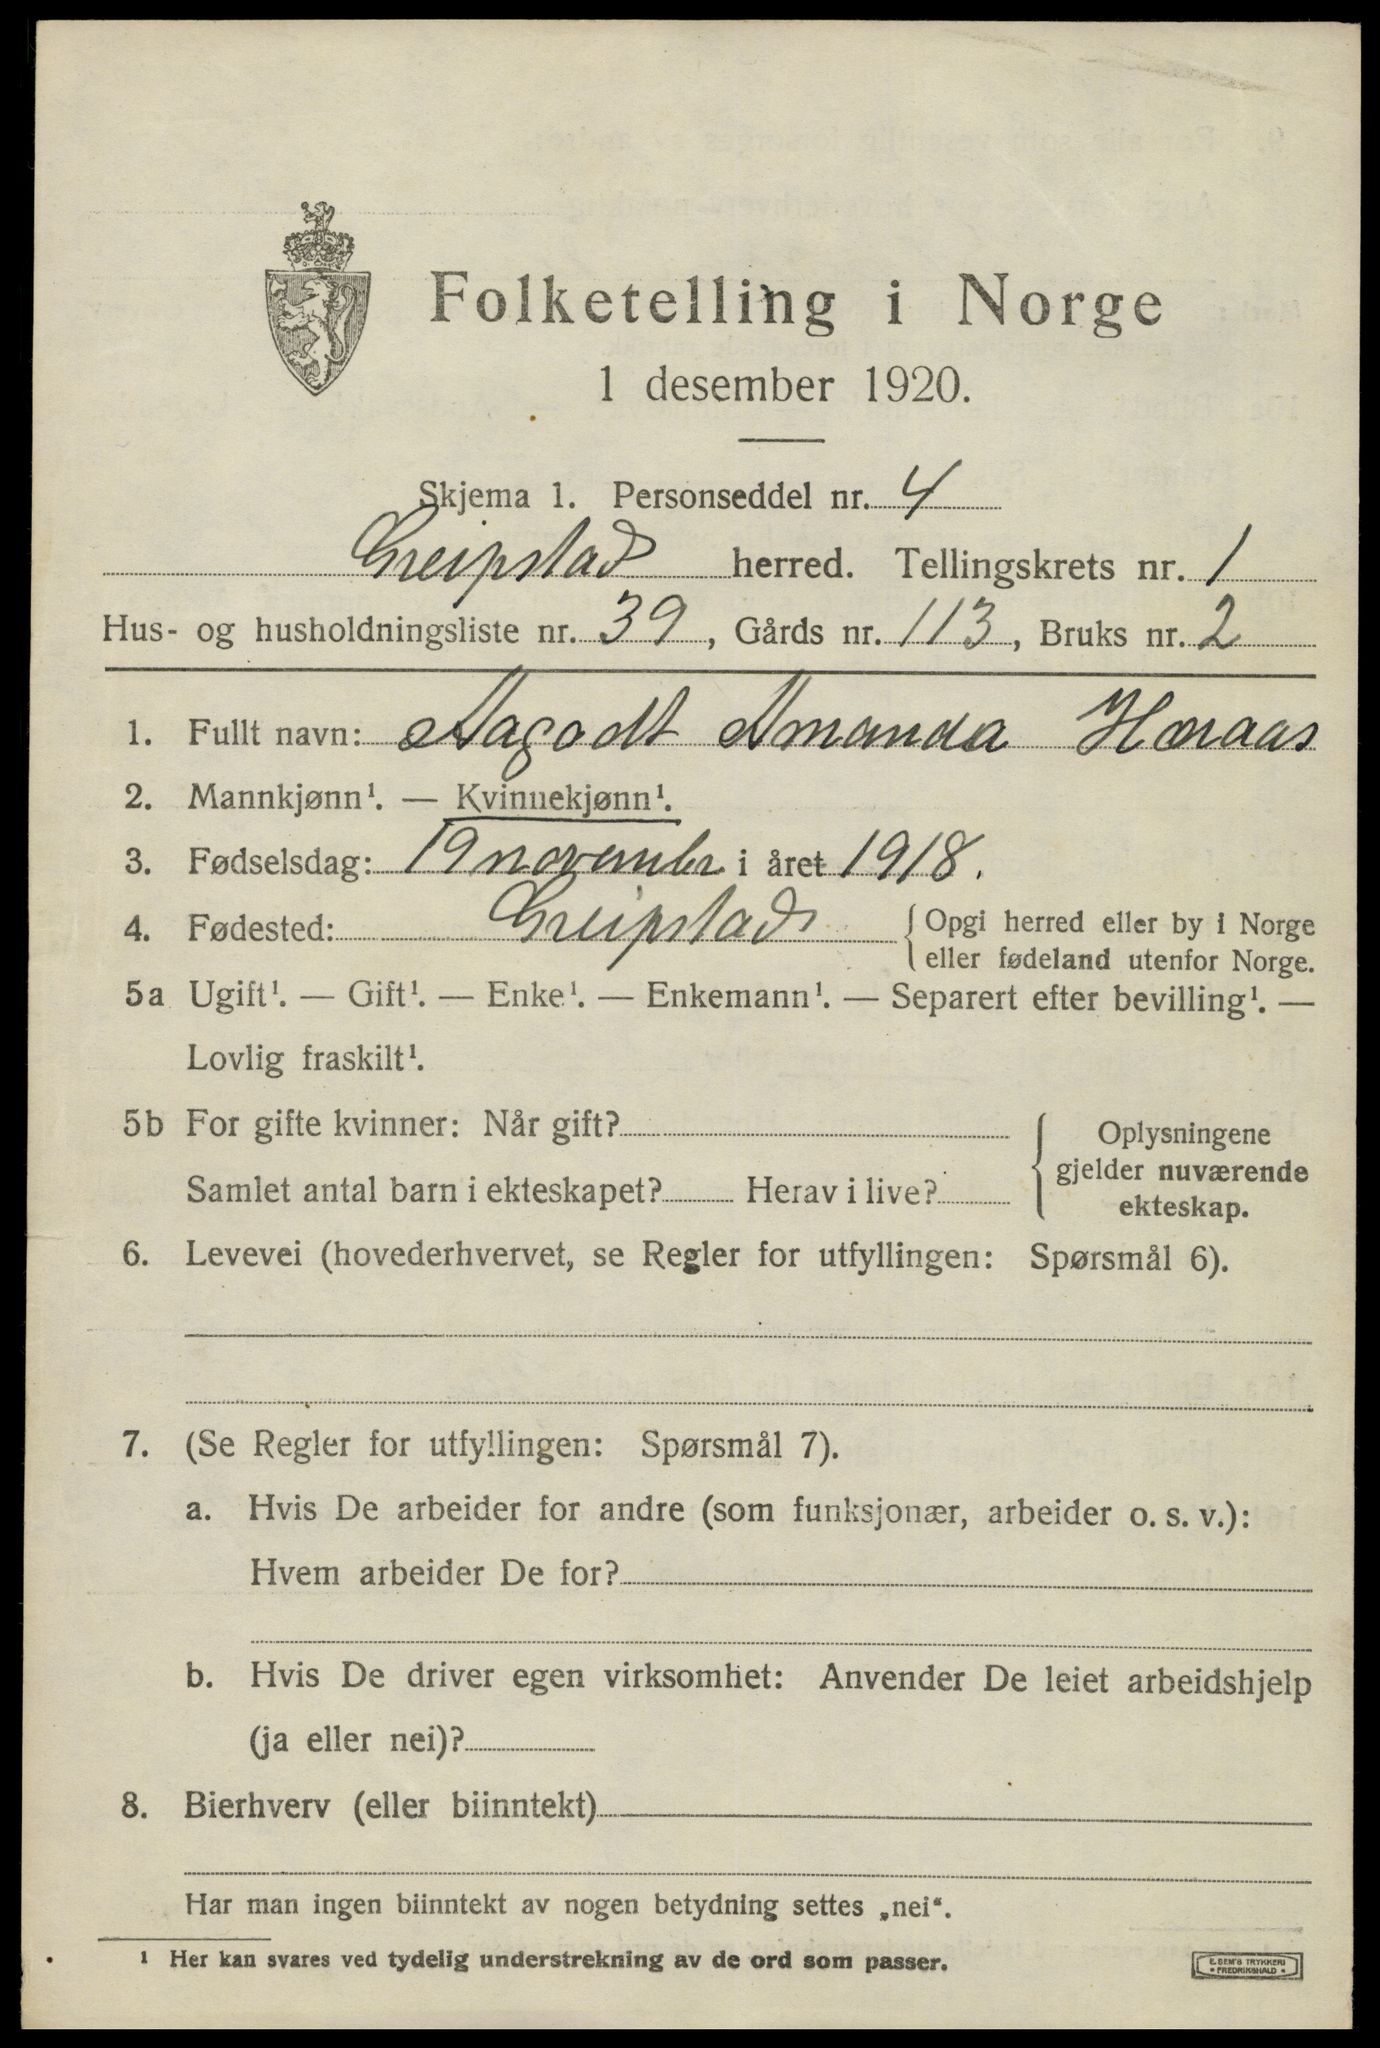 Folketelling i Norge
1 desember 1920.
Skjema 1. Personseddel nr. 4
Greipstad herred. Tellingskrets nr. 1
Hus- og husholdningsliste nr. 39, Gårds nr. 113, Bruks nr. 2
1. Fullt navn: Aagodt Amanda Høraas
2. Mannkjønn¹. — Kvinnekjønn¹.
3. Fødselsdag: 19 novembr i året 1918.
4. Fødested: Greipstad { Opgi herred eller by i Norge
eller fødeland utenfor Norge.
5a Ugift¹. — Gift¹. — Enke¹. — Enkemann¹. — Separert efter bevilling¹. —
Lovlig fraskilt¹.
5b For gifte kvinner: Når gift?
Samlet antal barn i ekteskapet? Herav i live?
Oplysningene
gjelder nuværende
ekteskap.
6. Levevei (hovederhvervet, se Regler for utfyllingen: Spørsmål 6).
7. (Se Regler for utfyllingen: Spørsmål 7).
a. Hvis De arbeider for andre (som funksjonær, arbeider o. s. v.):
Hvem arbeider De for?
b. Hvis De driver egen virksomhet: Anvender De leiet arbeidshjelp
(ja eller nei)?
8. Bierhverv (eller biinntekt)
Har man ingen biinntekt av nogen betydning settes „nei“.
¹ Her kan svares ved tydelig understrekning av de ord som passer.
E. SEM'S TRYKKERI
• FREDRIKSHALD •